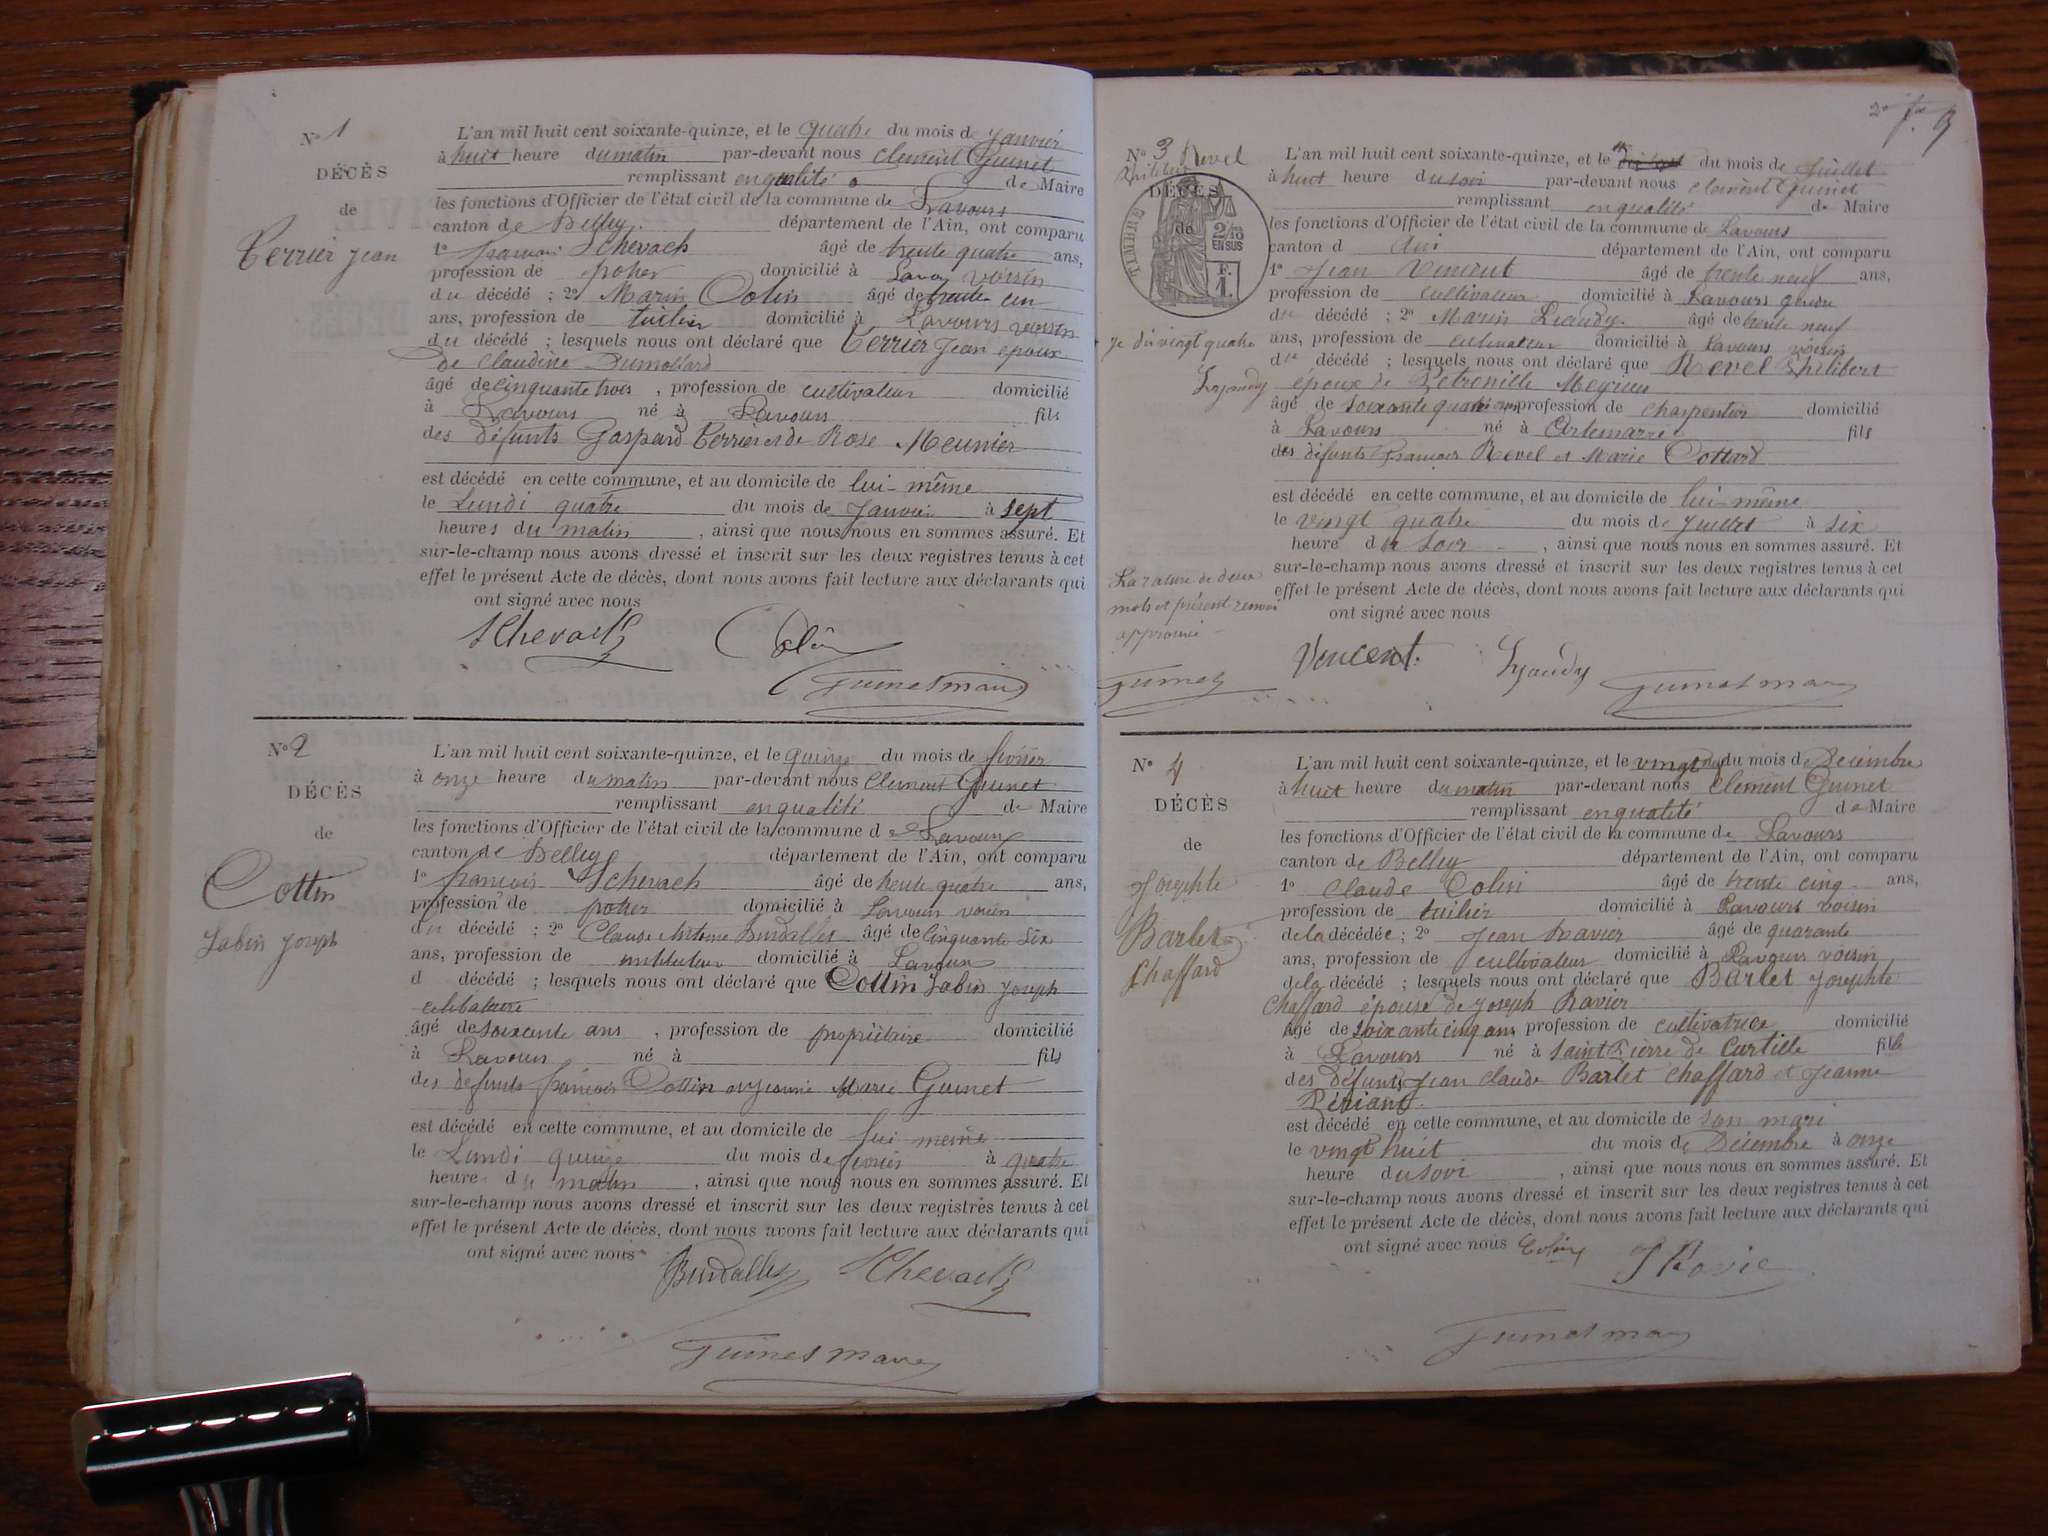 N° 1
DÉCÈS
de
Terrier Jean
L'an mil huit cent soixante-quinze, et le quatre du mois de Janvier
à huit heure du matin par-devant nous Clement Guinet
remplissant en qualité de Maire
les fonctions d'Officier de l'état civil de la commune de Lavours
canton de Belley département de l'Ain, ont comparu
1° françois Schevach âgé de trente quatre ans,
profession de potier domicilié à Lavours voisin
du décédé ; 2° Marin Colin âgé de trente un
ans, profession de tuilier domicilié à Lavours voisin
du décédé ; lesquels nous ont déclaré que Terrier Jean époux
de Claudine Dumollard
âgé de cinquante trois , profession de cultivateur domicilié
à Lavours né à Lavours fils
des défunts Gaspard Terrier et de Rose Meunier
est décédé en cette commune, et au domicile de lui-même
le Lundi quatre du mois de Janvier à sept
heures du matin , ainsi que nous nous en sommes assuré. Et
sur-le-champ nous avons dressé et inscrit sur les deux registres tenus à cet
effet le présent Acte de décès, dont nous avons fait lecture aux déclarants qui
ont signé avec nous
Colin
Guinet maire
N° 2
DÉCÈS
de
Cottin
Jabin Joseph
L'an mil huit cent soixante-quinze, et le quinze du mois de février
à onze heure du matin par-devant nous Clement Guinet
remplissant en qualité de Maire
les fonctions d'Officier de l'état civil de la commune de Lavours
canton de Belley département de l'Ain, ont comparu
1° françois Schevach âgé de trente quatre ans,
profession de potier domicilié à Lavours voisin
du décédé ; 2° Claude Antoine Burdallet âgé de cinquante six
ans, profession de instituteur domicilié à Lavours
d décédé ; lesquels nous ont déclaré que Cottin Jabin Joseph
celibataire
âgé de soixante ans , profession de propriétaire domicilié
à Lavours né à fils
des defunts françois Cottin et Jeanne Marie Guinet
est décédé en cette commune, et au domicile de lui meme
le Lundi quinze du mois de février à quatre
heure du matin , ainsi que nous nous en sommes assuré. Et
sur-le-champ nous avons dressé et inscrit sur les deux registres tenus à cet
effet le présent Acte de décès, dont nous avons fait lecture aux déclarants qui
ont signé avec nous
Burdallet
Guinet maire
2e
N° 3 Revel
Philibert
DÉCÈS
de
TIMBRE
2/10
EN SUS
F.
1.
L'an mil huit cent soixante-quinze, et le du mois de Juillet
à huit heure du soir par-devant nous Clement Guinet
remplissant en qualité de Maire
les fonctions d'Officier de l'état civil de la commune de Lavours
canton d Ain département de l'Ain, ont comparu
1° Jean Vincent âgé de trente neuf ans,
profession de cultivateur domicilié à Lavours gendre
du décédé ; 2° Marin Lyaudy âgé de trente neuf
ans, profession de cultivateur domicilié à Lavours voisin
du décédé ; lesquels nous ont déclaré que Revel Philibert
époux de Pétronille Meyrieu
âgé de soixante quatre ans profession de charpentier domicilié
à Lavours né à Artemarre fils
des défunts françois Revel et Marie Cottard
est décédé en cette commune, et au domicile de lui-même
le vingt quatre du mois de Juillet à six
heure du soir , ainsi que nous nous en sommes assuré. Et
sur-le-champ nous avons dressé et inscrit sur les deux registres tenus à cet
effet le présent Acte de décès, dont nous avons fait lecture aux déclarants qui
ont signé avec nous
vingt quatre
Lyaudy
La rature de deux
mots et présent renvoi
approuvé
Guinet
Vincent
Lyaudy
Guinet maire
N° 4
DÉCÈS
de
Josephte
Barlet
Chaffard
L'an mil huit cent soixante-quinze, et le vingt du mois de Décembre
à huit heure du matin par-devant nous Clement Guinet
remplissant en qualité de Maire
les fonctions d'Officier de l'état civil de la commune de Lavours
canton de Belley département de l'Ain, ont comparu
1° Claude Colin âgé de trente cinq ans,
profession de tuilier domicilié à Lavours voisin
de la décédée ; 2° Jean Ravier âgé de quarante
ans, profession de cultivateur domicilié à Lavours voisin
de la décédé ; lesquels nous ont déclaré que Barlet Josephte
Chaffard épouse de Joseph Ravier
âgé de soixante cinq ans profession de cultivatrice domicilié
à Lavours né à Saint Pierre de Curtille fille
des défunts Jean Claude Barlet Chaffard et Jeanne
est décédé en cette commune, et au domicile de son mari
le vingt huit du mois de Décembre à onze
heure du soir , ainsi que nous nous en sommes assuré. Et
sur-le-champ nous avons dressé et inscrit sur les deux registres tenus à cet
effet le présent Acte de décès, dont nous avons fait lecture aux déclarants qui
ont signé avec nous Colin
J Ravie
Guinet maire